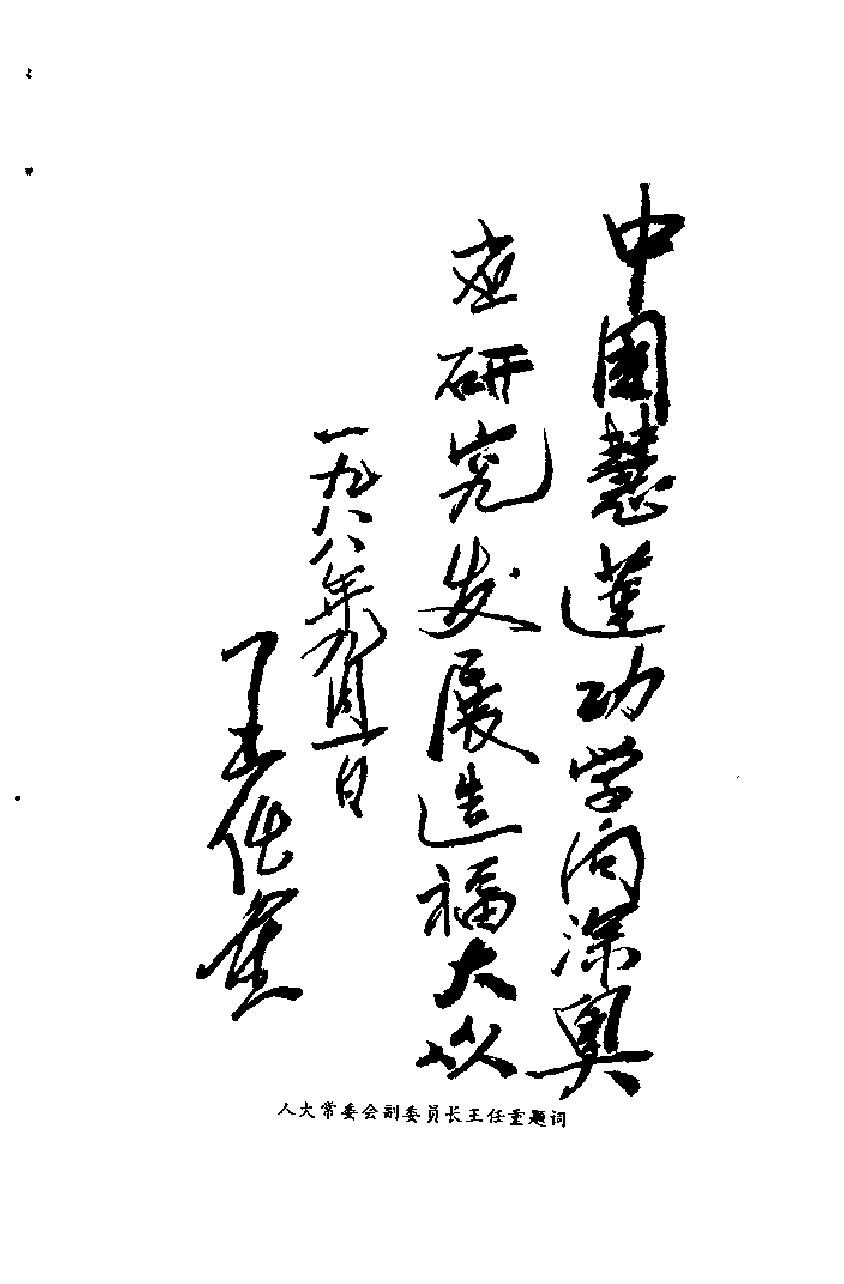 中国慧莲功学问深奥
应研究发展造福大众
一九八八年九月一日
王任重
人大常委会副委员长王任重题词